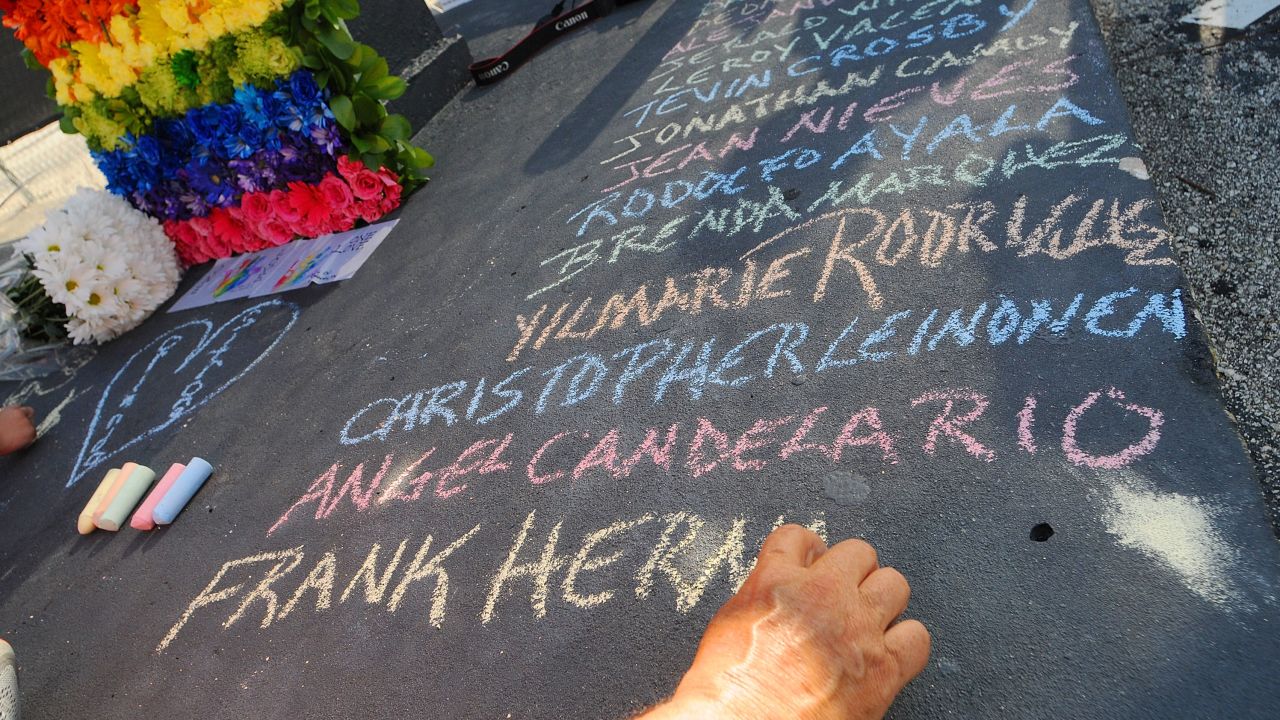 Canon
Canon
LEROY VALEN
TEVIN CROSBY
JONATHAN CAMUY
JEAN NIEVES
RODOLFO AYALA
BRENDA MARQUEZ
YILMARIE RODRIGUES
CHRISTOPHER LEINONEN
ANGEL CANDELARIO
FRANK HERN